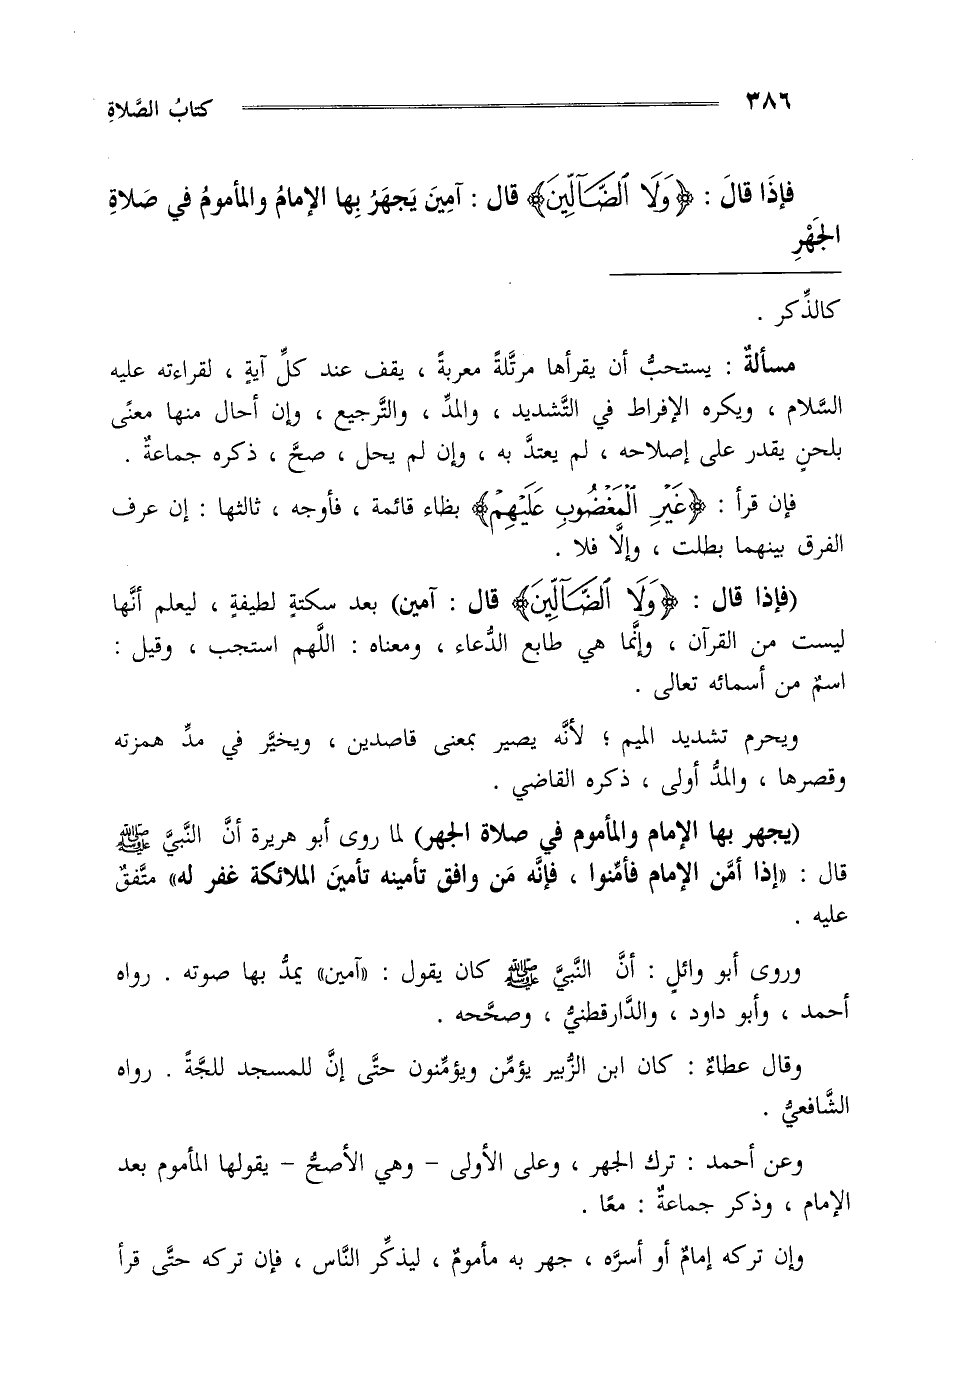 ٣٨٦ كتابُ الصَّلاةِ
فإذَا قالَ : ﴿وَلَا ٱلضَّآلِّينَ﴾ قال : آمِينَ يَجهَرُ بِها الإمامُ والمأمومُ في صَلاةِ
الجَهْرِ
كالذِّكر .
مسألةٌ : يستحبُّ أن يقرأها مرتَّلةً معربةً ، يقف عند كلِّ آيةٍ ، لقراءته عليه
السَّلام ، ويكره الإفراط في التَّشديد ، والمدِّ ، والتَّرجيع ، وإن أحال منها معنًى
بلحنٍ يقدر على إصلاحه ، لم يعتدَّ به ، وإن لم يحل ، صحَّ ، ذكره جماعةٌ .
فإن قرأ : ﴿غَيْرِ ٱلْمَغْضُوبِ عَلَيْهِمْ﴾ بظاء قائمة ، فأوجه ، ثالثها : إن عرف
الفرق بينهما بطلت ، وإلَّا فلا .
(فإذا قال : ﴿وَلَا ٱلضَّآلِّينَ﴾ قال : آمين) بعد سكتةٍ لطيفةٍ ، ليعلم أنَّها
ليست من القرآن ، وإنَّما هي طابع الدُّعاء ، ومعناه : اللَّهم استجب ، وقيل :
اسمٌ من أسمائه تعالى .
ويحرم تشديد الميم ؛ لأنَّه يصير بمعنى قاصدين ، ويخيَّر في مدِّ همزته
وقصرها ، والمدُّ أولى ، ذكره القاضي .
(يجهر بها الإمام والمأموم في صلاة الجهر) لما روى أبو هريرة أنَّ النَّبيَّ ﷺ
قال : «إذا أمَّن الإمام فأمِّنوا ، فإنَّه مَن وافق تأمينه تأمينَ الملائكة غفر له» متَّفقٌ
عليه .
وروى أبو وائلٍ : أنَّ النَّبيَّ ﷺ كان يقول : «آمين» يمدُّ بها صوته . رواه
أحمد ، وأبو داود ، والدَّارقطنيُّ ، وصحَّحه .
وقال عطاءٌ : كان ابن الزُّبير يؤمِّن ويؤمِّنون حتَّى إنَّ للمسجد للجَّةً . رواه
الشَّافعيُّ .
وعن أحمد : ترك الجهر ، وعلى الأولى – وهي الأصحُّ – يقولها المأموم بعد
الإمام ، وذكر جماعةٌ : معًا .
وإن تركه إمامٌ أو أسرَّه ، جهر به مأمومٌ ، ليذكِّر النَّاس ، فإن تركه حتَّى قرأ